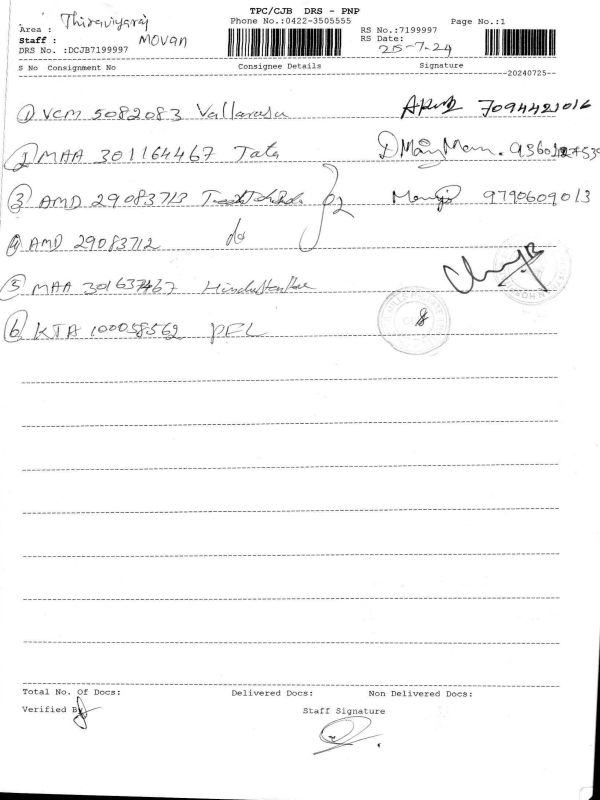 TPC/CJB DRS - PNP
Phone No.:0422-3505555 Page No.:1
Area : Thiraviyaraj RS No.:7199997
Staff : Movan RS Date: 25-7-24
DRS No. :DCJB7199997
S No Consignment No Consignee Details Signature
--20240725--
① VCM 5082083 Vallarasu 7094421016
② MAA 301164467 Tata
③ AMD 29083713 02 9790609013
④ AMD 29083712 do
⑤ MAA 301637467
⑥ KTA 100058562 PFL 8
Total No. Of Docs: Delivered Docs: Non Delivered Docs:
Verified By
Staff Signature